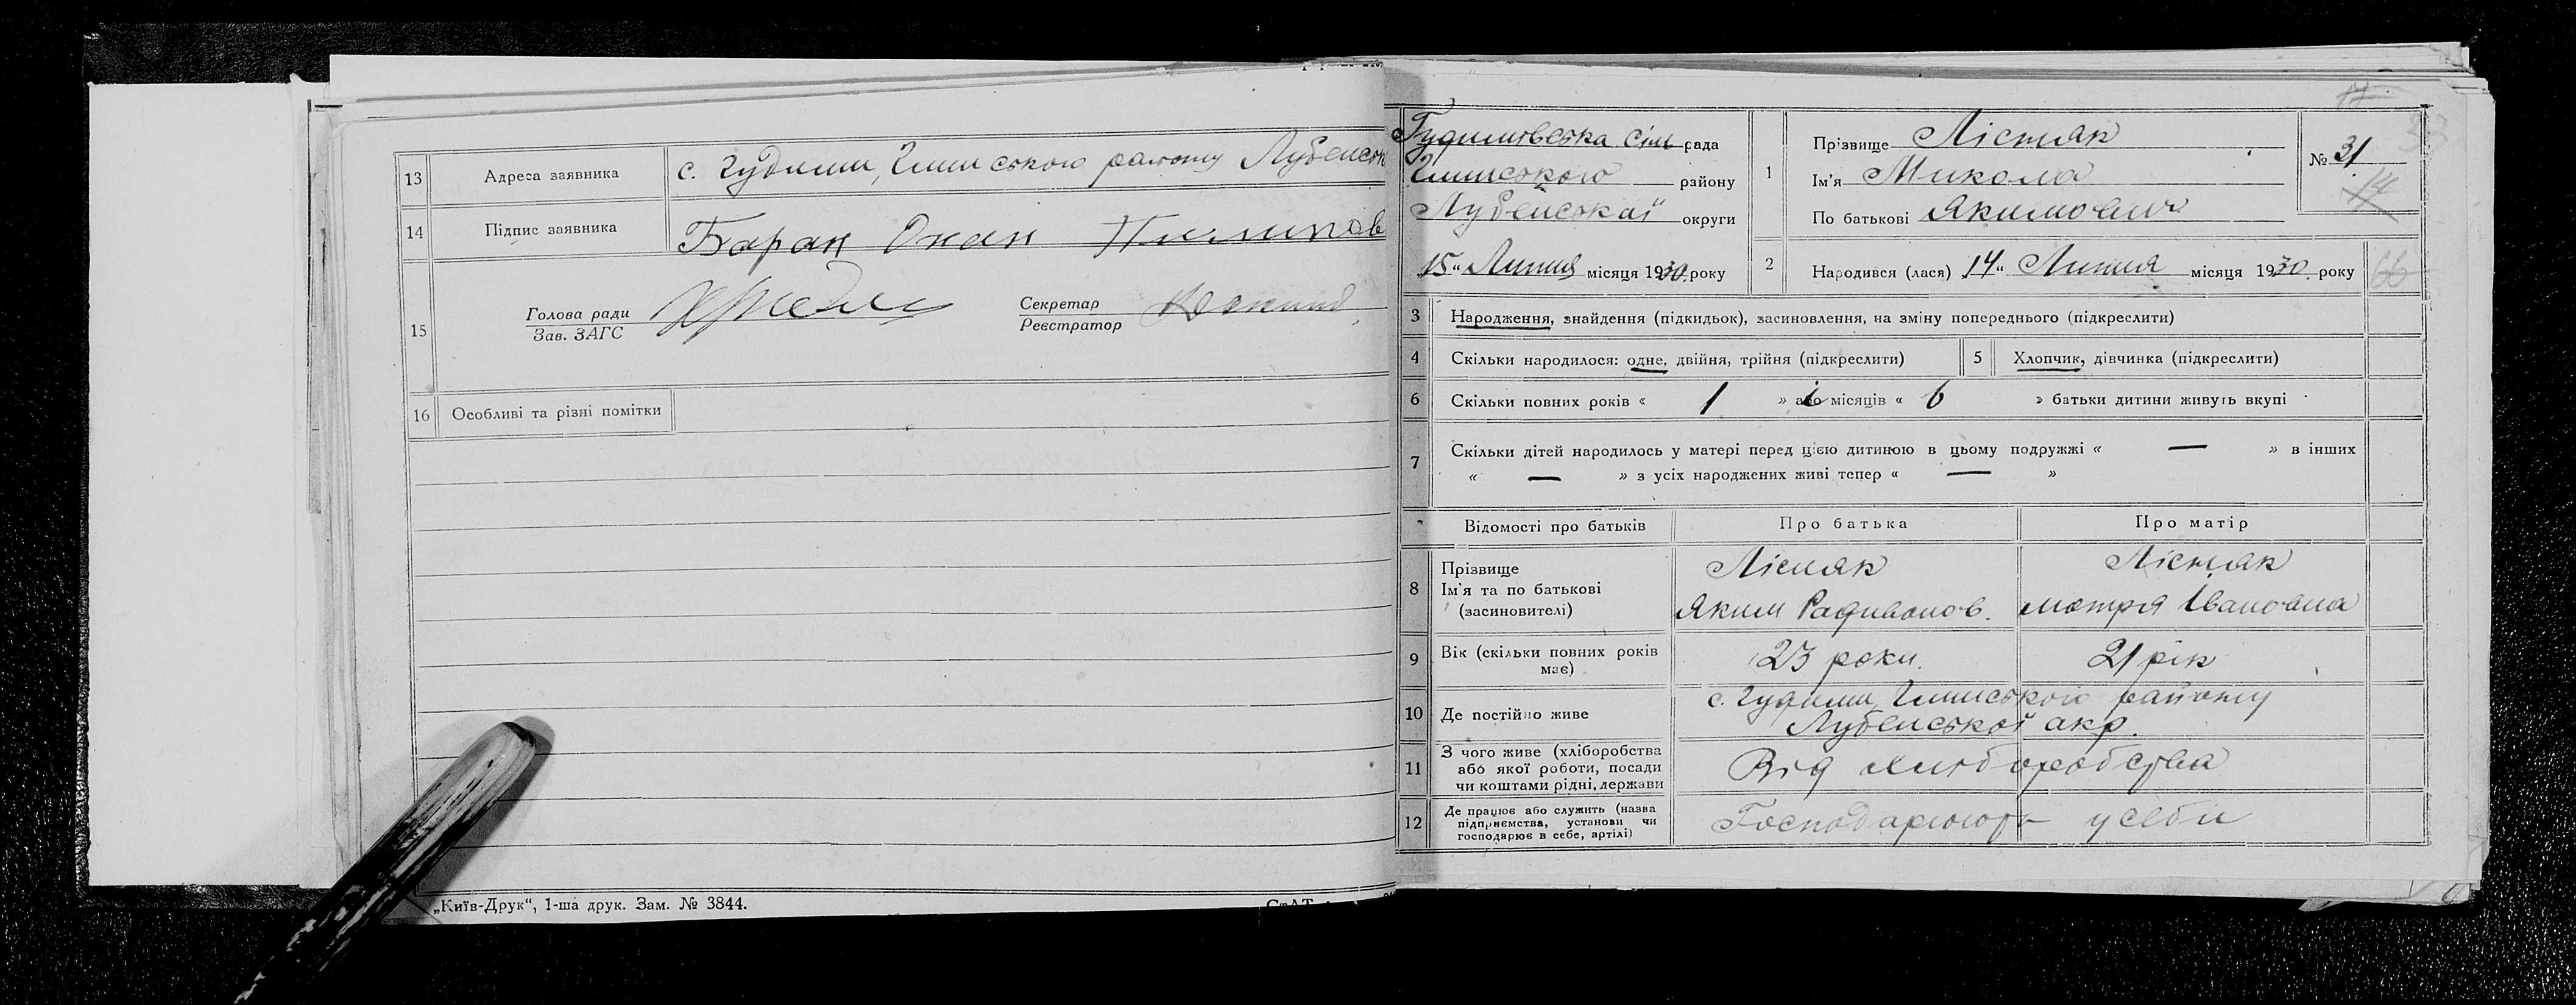 13 Адреса заявника с. Гудими, Глинського району Лубенськ
14 Підпис заявника Баран Охон Пилипов
15 Голова ради
Зав. ЗАГС
Секретар
Реєстратор
16 Особливі та різні помітки
„Київ-Друк“, 1-ша друк. Зам. № 3844.
Гудимівська сіль рада
Глинського району
Лубенської округи
„15“ Липня місяця 1930 року
1 Прізвище Лісняк
Ім'я Микола
По батькові Якимович
№ 31
14
33
2 Народився (лася) 14“ Липня місяця 1930 року
66
3 Народження, знайдення (підкидьок), засиновлення, на зміну попереднього (підкреслити)
4 Скільки народилося: одне, двійня, трійня (підкреслити)
5 Хлопчик, дівчинка (підкреслити)
6 Скільки повних років « 1 » або і місяців « 6 » батьки дитини живуть вкупі
7 Скільки дітей народилось у матері перед цією дитиною в цьому подружжі « — » в інших
« — » з усіх народжених живі тепер « — »
Відомості про батьків Про батька Про матір
8 Прізвище
Ім'я та по батькові
(засиновителі)
Лісняк
Яким Радивонов.
Лісняк
Мотря Івановна
9 Вік (скільки повних років має) 23 роки. 21 рік
10 Де постійно живе с. Гудими, Глинського району
Лубенської акр.
11 З чого живе (хліборобства
або якої роботи, посади
чи коштами рідні, держави
Від хліборобства
12 Де працює або служить (назва
підприємства, установи чи
господарює в себе, артілі)
Господарюють у себи